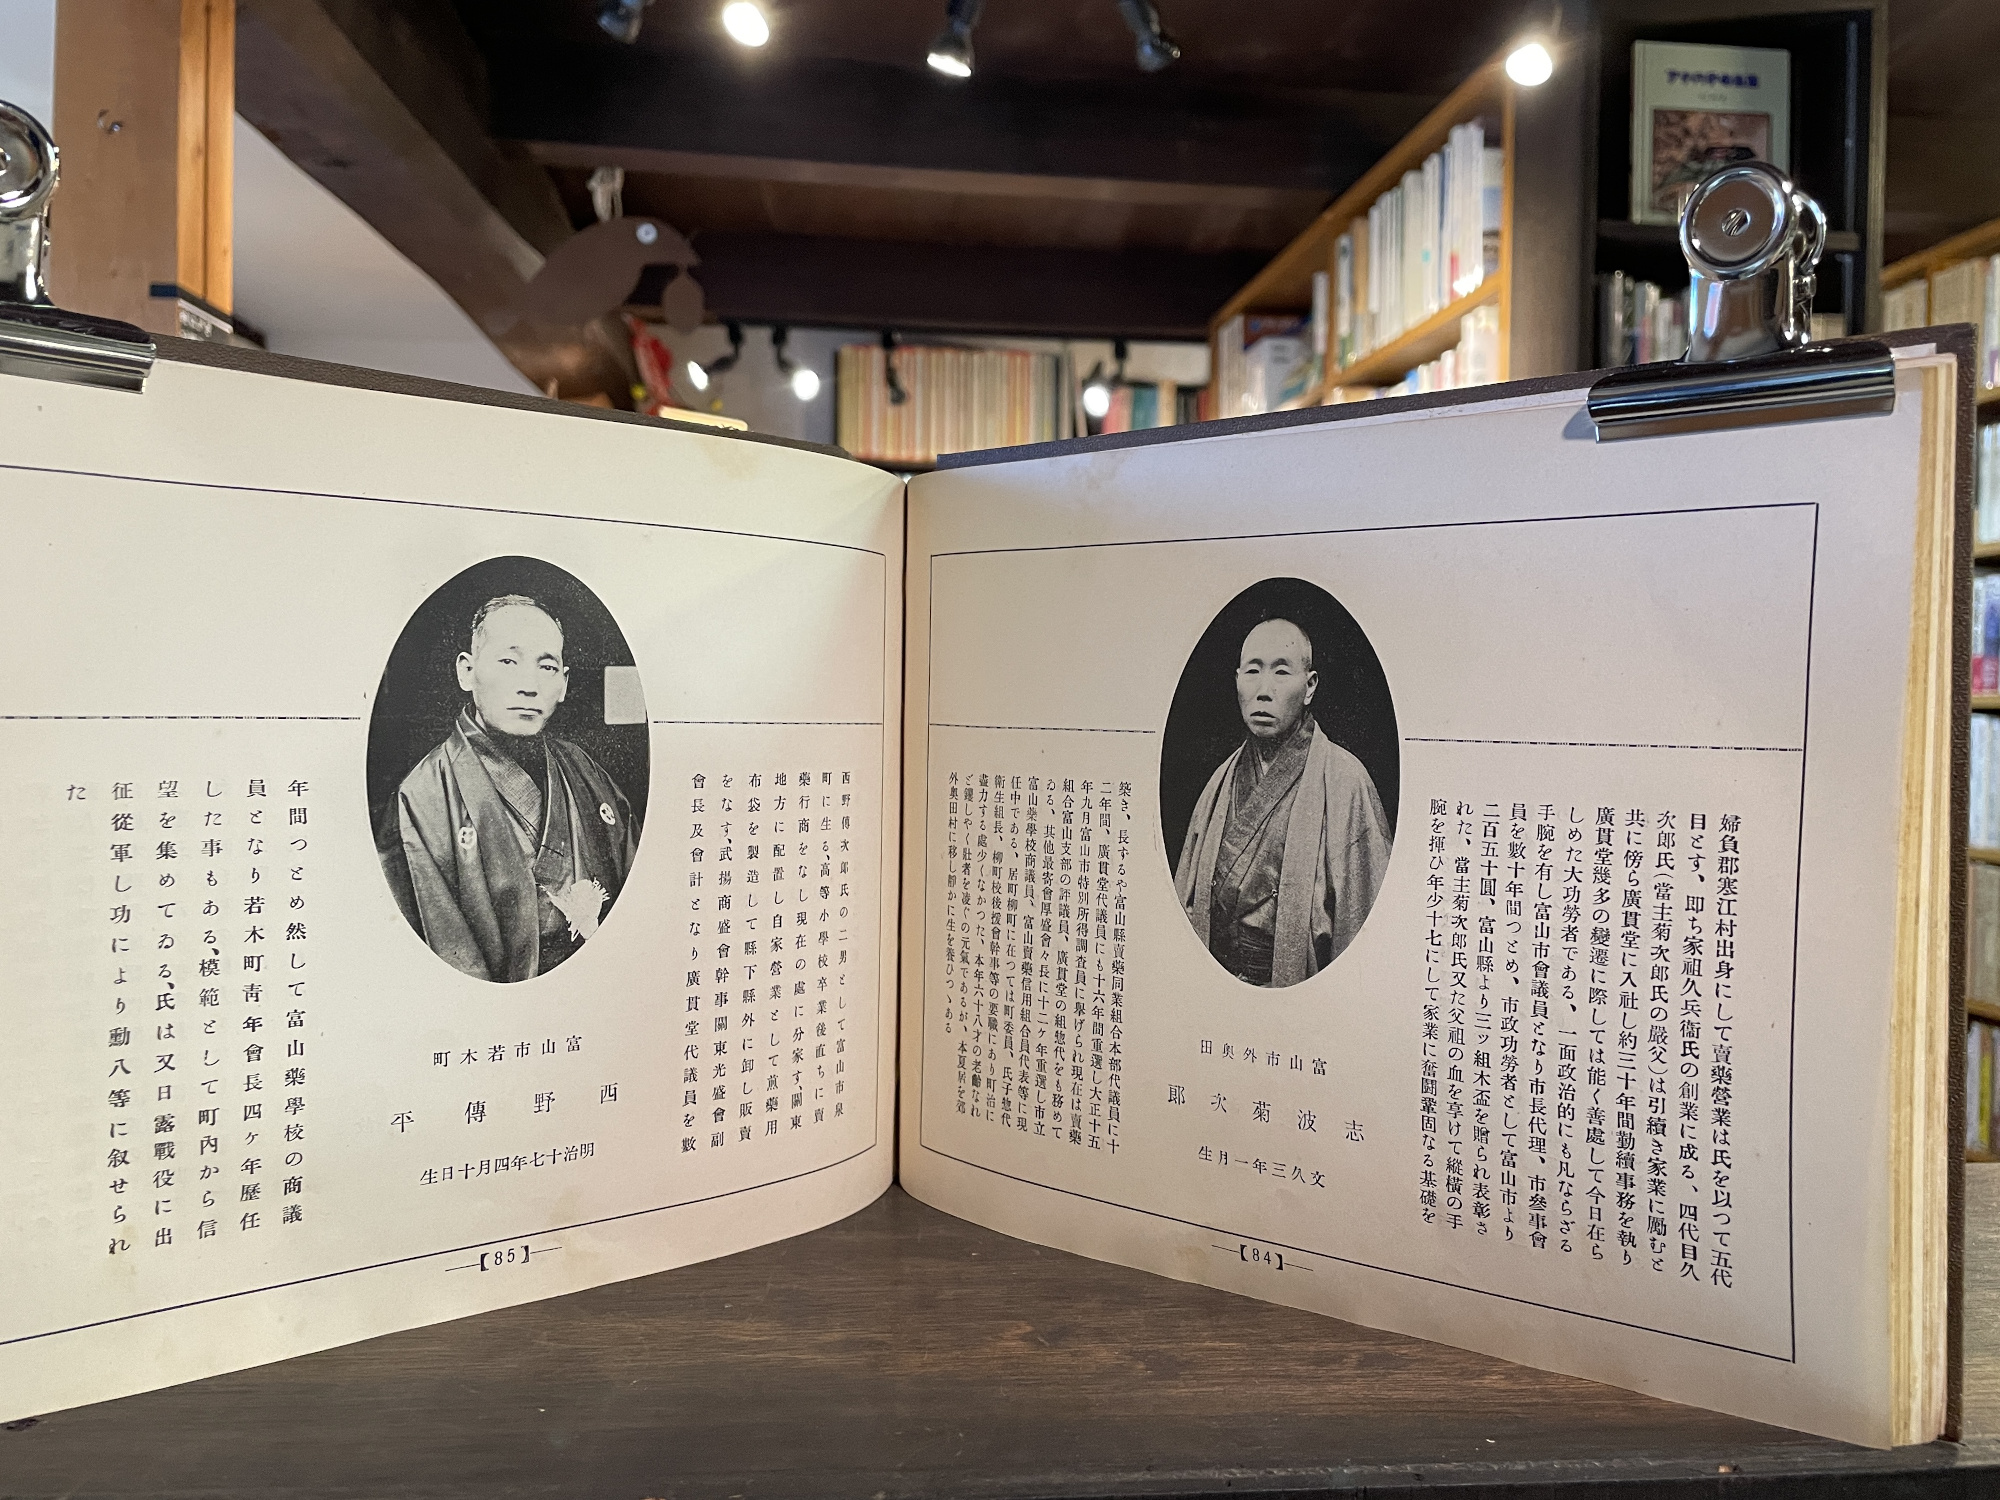 婦負郡寒江村出身にして賣藥營業は氏を以つて五代
目とす、即ち家祖久兵衞氏の創業に成る、四代目久
次郎氏(當主菊次郎氏の嚴父)は引續き家業に勵むと
共に傍ら廣貫堂に入社し約三十年間勤續事務を執り
廣貫堂幾多の變遷に際しては能く善處して今日在ら
しめた大功勞者である、一面政治的にも凡ならざる
手腕を有し富山市會議員となり市長代理、市叅事會
員を數十年間つとめ、市政功勞者として富山市より
二百五十圓、富山縣より三ッ組木盃を贈られ表彰さ
れた、當主菊次郎氏又た父祖の血を享けて縱橫の手
腕を揮ひ年少十七にして家業に奮鬪鞏固なる基礎を
富山市外奥田
志波菊次郎
文久三年一月生
築き、長ずるや富山縣賣藥同業組合本部代議員に十
二年間、廣貫堂代議員にも十六年間重選し大正十五
年九月富山市特別所得調査員に擧げられ現在は賣藥
組合富山支部の評議員、廣貫堂の組惣代をも務めて
ゐる、其他最寄會厚盛會々長に十二ヶ年重選し市立
富山藥學校商議員、富山賣藥信用組合員代表等に現
任中である、居町柳町に在つては町委員、氏子惣代
衛生組長、柳町校後援會幹事等の要職にあり町治に
盡力する處少くなかつた、本年六十八才の老齡なれ
ど鑺しやく壯者を凌ぐの元氣であるが、本夏居を郊
外奥田村に移し靜かに生を養ひつゝある
【84】
西野傳次郎氏の二男として富山市泉
町に生る、高等小學校卒業後直ちに賣
藥行商をなし現在の處に分家す、關東
地方に配置し自家營業として煎藥用
布袋を製造して縣下縣外に卸し販賣
をなす、武揚商盛會幹事關東光盛會副
會長及會計となり廣貫堂代議員を數
富山市若木町
西野傳平
明治十七年四月十日生
年間つとめ然して富山藥學校の商議
員となり若木町靑年會長四ヶ年歷任
した事もある、模範として町內から信
望を集めてゐる、氏は又日露戰役に出
征從軍し功により勳八等に叙せられ
た
【85】